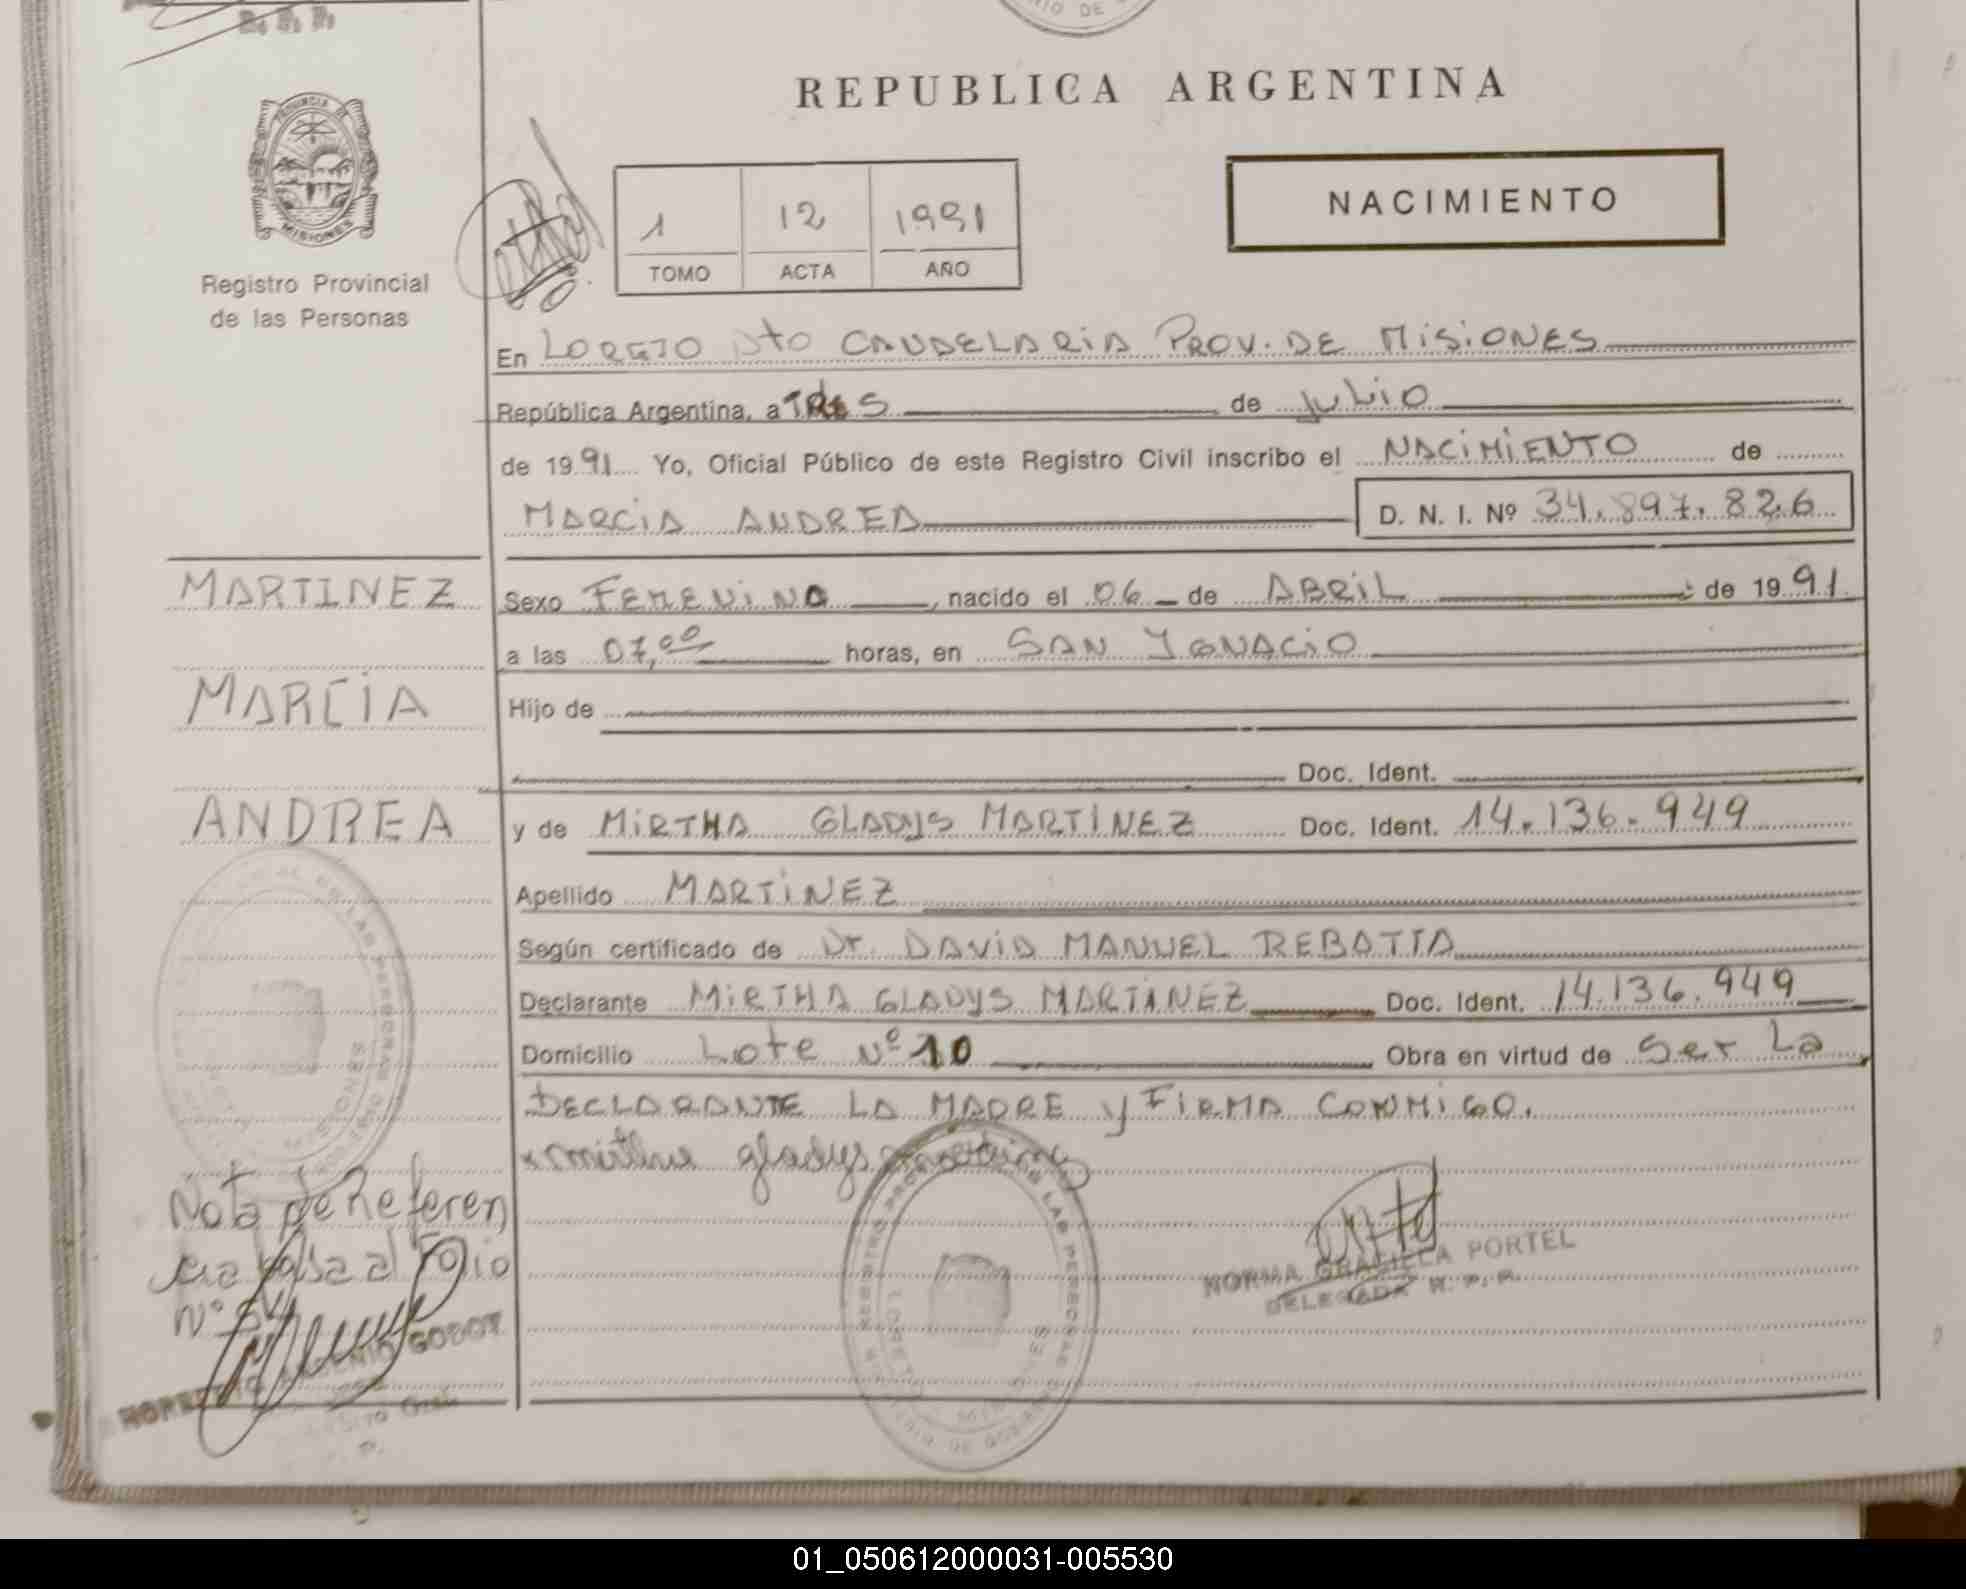 R. P. P.
IO DE
REPUBLICA ARGENTINA
PROVINCIA DE
MISIONES
Registro Provincial
de las Personas
1 12 1991
TOMO ACTA AÑO
NACIMIENTO
En LORETO Dto CANDELARIA PROV. DE MISIONES
República Argentina, a TRES de JULIO
de 1991 Yo, Oficial Público de este Registro Civil inscribo el NACIMIENTO de
MARCIA ANDREA D. N. I. Nº 34.897.826
MARTINEZ
Sexo FEMENINO, nacido el 06 de ABRIL de 1991
a las 07,00 horas, en SAN IGNACIO
MARCIA
Hijo de
Doc. Ident.
ANDREA
y de MIRTHA GLADYS MARTINEZ Doc. Ident. 14.136.949
Apellido MARTINEZ
Según certificado de Dr. DAVID MANUEL REBATTA
Declarante MIRTHA GLADYS MARTINEZ Doc. Ident. 14.136.949
Domicilio Lote Nº 10 Obra en virtud de Ser La
DECLARANTE LA MADRE y FIRMA CONMIGO.
mirtha gladys martinez
Nota de Referen
cia pasa al Folio
Nº
GODOY
NORMA GRACIELA PORTEL
DELEGADA R. P. P.
LORETO
MISIONES
01_050612000031-005530